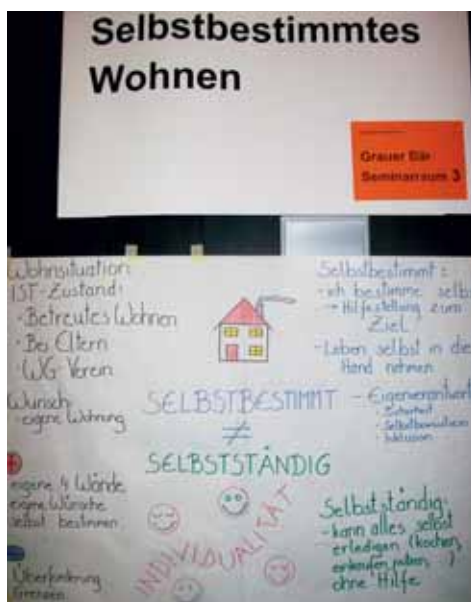 Selbstbestimmtes
Wohnen
Grauer Bär
Seminarraum 3
Wohnsituation:
IST-Zustand:
• Betreutes Wohnen
• Bei Eltern
• WG-Verein
Wunsch:
eigene Wohnung
+
eigene 4 Wände
eigene Wünsche
selbst bestimmen
-
Überforderung
Grenzen
SELBSTBESTIMMT
≠
SELBSTSTÄNDIG
INDIVIDUALITÄT
Selbstbestimmt:
- ich bestimme selb
→ Hilfestellung zum
Ziel
- Leben selbst in die
Hand nehmen
- Eigenverantwort
• Sicherheit
• Selbstbewusstsein
• Inklusion
Selbstständig:
- kann alles selbst
erledigen (kochen,
einkaufen, )
ohne Hilfe